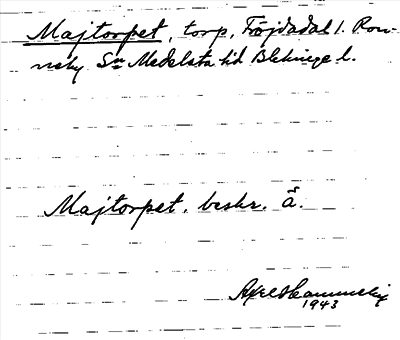 Majtorpet, torp, Fröjdadal 1. Ron-
neby Sn Medelsta hd Blekinge l.
Majtorpet. beskr. å.
Axel
1943